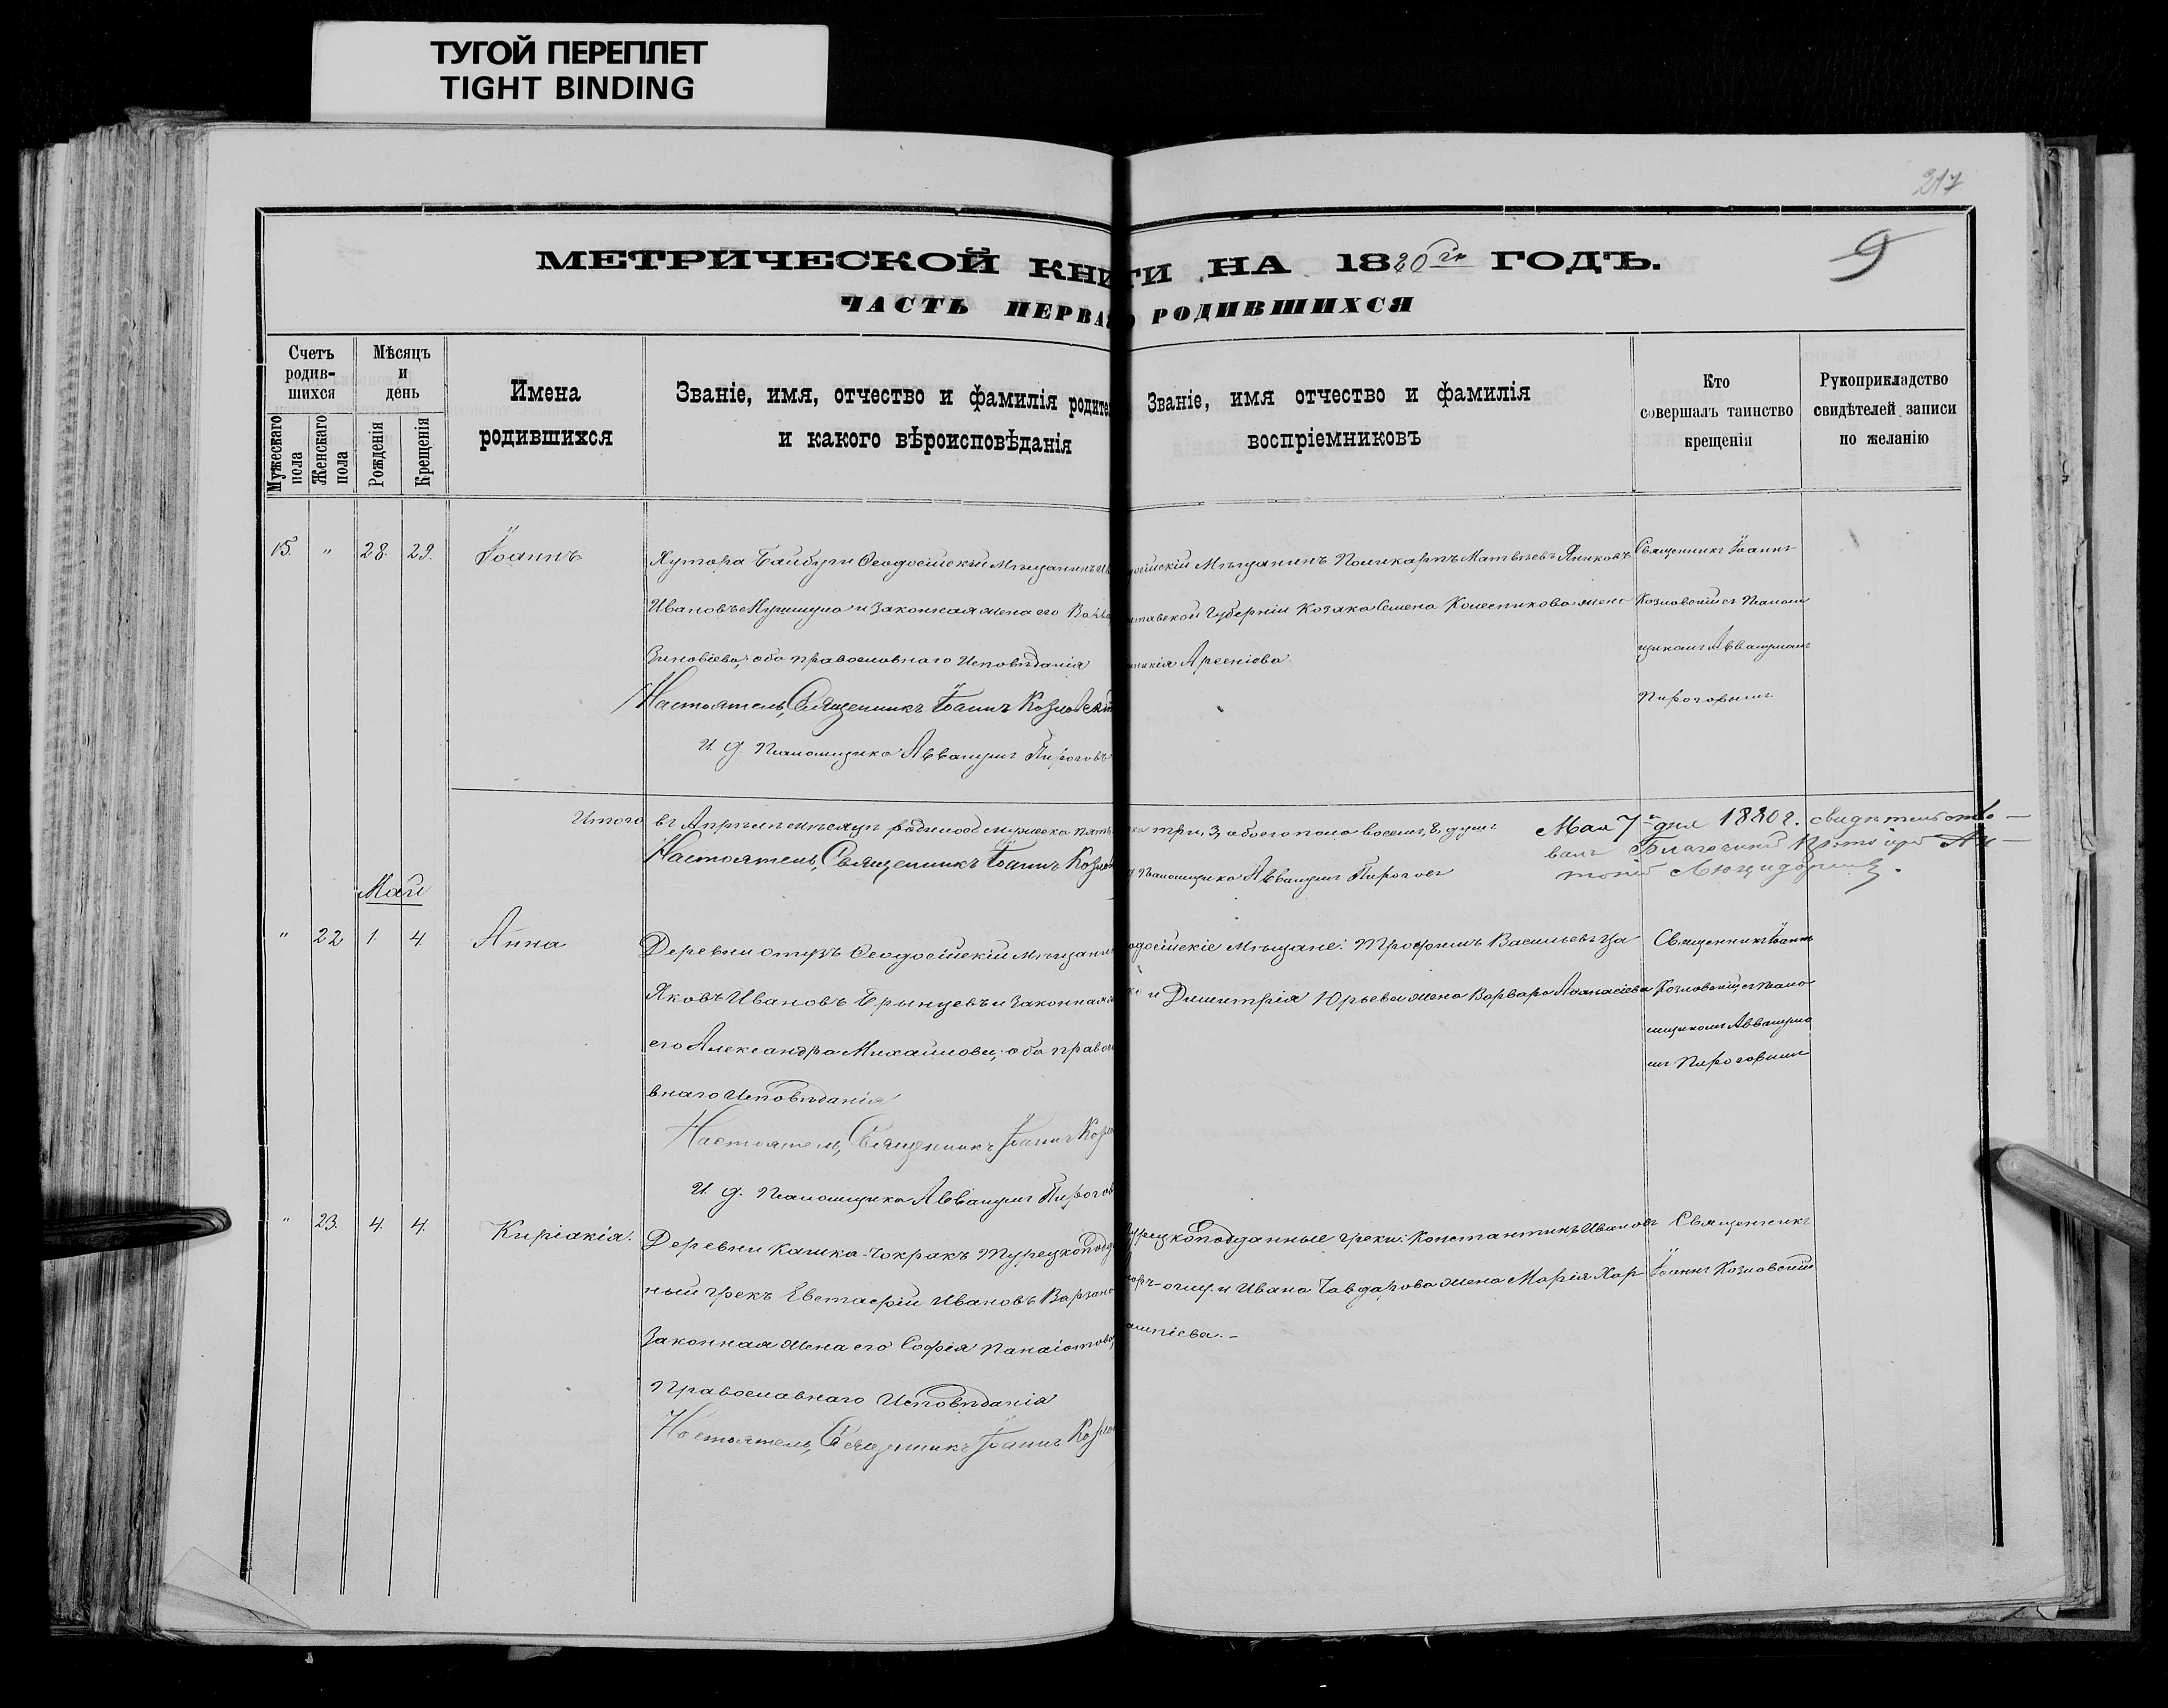 ТУГОЙ ПЕРЕПЛЕТ
TIGHT BINDING
217
9
МЕТРИЧЕСКОЙ КНИГИ НА 1880й ГОДЪ.
ЧАСТЬ ПЕРВАЯ О РОДИВШИХСЯ
Счетъ родив-шихся
Мужескаго пола
Женскаго пола
Мѣсяцъ и день
Рожденія
Крещенія
Имена родившихся
Званіе, имя, отчество и фамилія родите
и какого вѣроисповѣданія
Званіе, имя отчество и фамилія
воспріемниковъ
Кто
совершалъ таинство
крещенія
Рукоприкладство
свидѣтелей записи
по желанію
15. " 28. 29. Іоаннъ
Хутора Байбуги Ѳеодосійскій Мѣщанинъ Ив
Ивановъ и законная жена его Вар
Зиновіева, оба православнаго Исповѣданія
Настоятель, Священникъ Іоаннъ Козловскій
И. д. Псаломщика Авваκумъ Пироговъ
досійскій Мѣщанинъ Поликарпъ Матвѣевъ Яниковъ
тавской Губерніи Козака Семена Колесникова жена
никія Арсеніева
Священникъ Іоаннъ
Козловскій съ Псалом
щикомъ Аввакумомъ
Пироговымъ
Итого въ Апрѣлѣ мѣсяцѣ родилось мужеска пять
ска три, 3, обоего пола восемь, 8, душъ
Настоятель, Священникъ Іоаннъ Козлов
Псаломщика Аввакумъ Пироговъ
Мая 7 дня 1880 г. свидѣтельство-
валъ Благочинный Протоіерей Ан-
тоній
Май
" 22 1. 4. Анна
Деревни Отузъ Ѳеодосійскій Мѣщанин
Яковъ Ивановъ Брынцевъ и законная ж
его Александра Михайлова, оба правосл
внаго Исповѣданія
Настоятель, Священникъ Іоаннъ Козло
И. д. Псаломщика Аввакумъ Пирогов
одосійскіе Мѣщане: Трофимъ Васильевъ
и Димитрія Юрьева жена Варвара Аѳанасіева
Священникъ Іоаннъ
Козловскій съ Псало
мщикомъ Аввакумо
мъ Пироговымъ
" 23. 4. 4. Киріакія.
Деревни Кашка-Чокракъ Турецкоподда
ный грекъ Евстафій Ивановъ
Законная жена его Софія Панаіотова,
Православнаго Исповѣданія
Настоятель, Священникъ Іоаннъ Козло
урецкоподданные греки: Константинъ Ивановъ
и Ивана Чавдарова жена Марія Хар
ампіева.-
Священникъ
Іоаннъ Козловскій